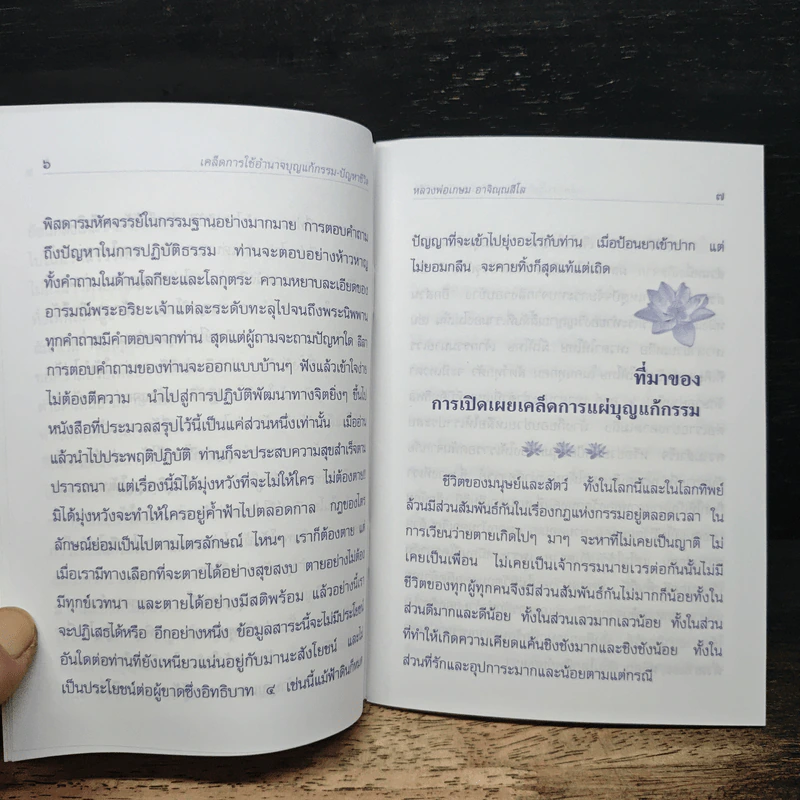 ๖
เคล็ดการใช้อำนาจบุญแก้กรรม-ปัญหาชีวิต
พิสดารมหัศจรรย์ในกรรมฐานอย่างมากมาย การตอบคำถาม
ถึงปัญหาในการปฏิบัติธรรม ท่านจะตอบอย่างห้าวหาญ
ทั้งคำถามในด้านโลกียะและโลกุตระ ความหยาบละเอียดของ
อารมณ์พระอริยะเจ้าแต่ละระดับทะลุไปจนถึงพระนิพพาน
ทุกคำถามมีคำตอบจากท่าน สุดแต่ผู้ถามจะถามปัญหาใด ลีลา
การตอบคำถามของท่านจะออกแบบบ้านๆ ฟังแล้วเข้าใจง่าย
ไม่ต้องตีความ นำไปสู่การปฏิบัติพัฒนาทางจิตยิ่งๆ ขึ้นไป
หนังสือที่ประมวลสรุปไว้นี้เป็นแค่ส่วนหนึ่งเท่านั้น เมื่ออ่าน
แล้วนำไปประพฤติปฏิบัติ ท่านก็จะประสบความสุขสำเร็จตาม
ปรารถนา แต่เรื่องนี้มิได้มุ่งหวังที่จะไม่ให้ใคร ไม่ต้องตาย
มิได้มุ่งหวังจะทำให้ใครอยู่ค้ำฟ้าไปตลอดกาล กฎของไตร
ลักษณ์ย่อมเป็นไปตามไตรลักษณ์ ไหนๆ เราก็ต้องตาย แต่
เมื่อเรามีทางเลือกที่จะตายได้อย่างสุขสงบ ตายอย่างไม่ต้อง
มีทุกข์เวทนา และตายได้อย่างมีสติพร้อม แล้วอย่างนี้เรา
จะปฏิเสธได้หรือ อีกอย่างหนึ่ง ข้อมูลสาระนี้จะไม่มีประโยชน์
อันใดต่อท่านที่ยังเหนียวแน่นอยู่กับมานะสังโยชน์ และไม่
เป็นประโยชน์ต่อผู้ขาดซึ่งอิทธิบาท ๔ เช่นนี้แม้ฟ้าดิน
หลวงพ่อเกษม อาจิณฺณสีโล
๗
ปัญญาที่จะเข้าไปยุ่งอะไรกับท่าน เมื่อป้อนยาเข้าปาก แต่
ไม่ยอมกลืน จะคายทิ้งก็สุดแท้แต่เถิด
ที่มาของ
การเปิดเผยเคล็ดการแผ่บุญแก้กรรม
ชีวิตของมนุษย์และสัตว์ ทั้งในโลกนี้และในโลกทิพย์
ล้วนมีส่วนสัมพันธ์กันในเรื่องกฎแห่งกรรมอยู่ตลอดเวลา ใน
การเวียนว่ายตายเกิดไปๆ มาๆ จะหาที่ไม่เคยเป็นญาติ ไม่
เคยเป็นเพื่อน ไม่เคยเป็นเจ้ากรรมนายเวรต่อกันนั้นไม่มี
ชีวิตของทุกผู้ทุกคนจึงมีส่วนสัมพันธ์กันไม่มากก็น้อยทั้งใน
ส่วนดีมากและดีน้อย ทั้งในส่วนเลวมากเลวน้อย ทั้งในส่วน
ที่ทำให้เกิดความเคียดแค้นชิงชังมากและชิงชังน้อย ทั้งใน
ส่วนที่รักและอุปการะมากและน้อยตามแต่กรณี